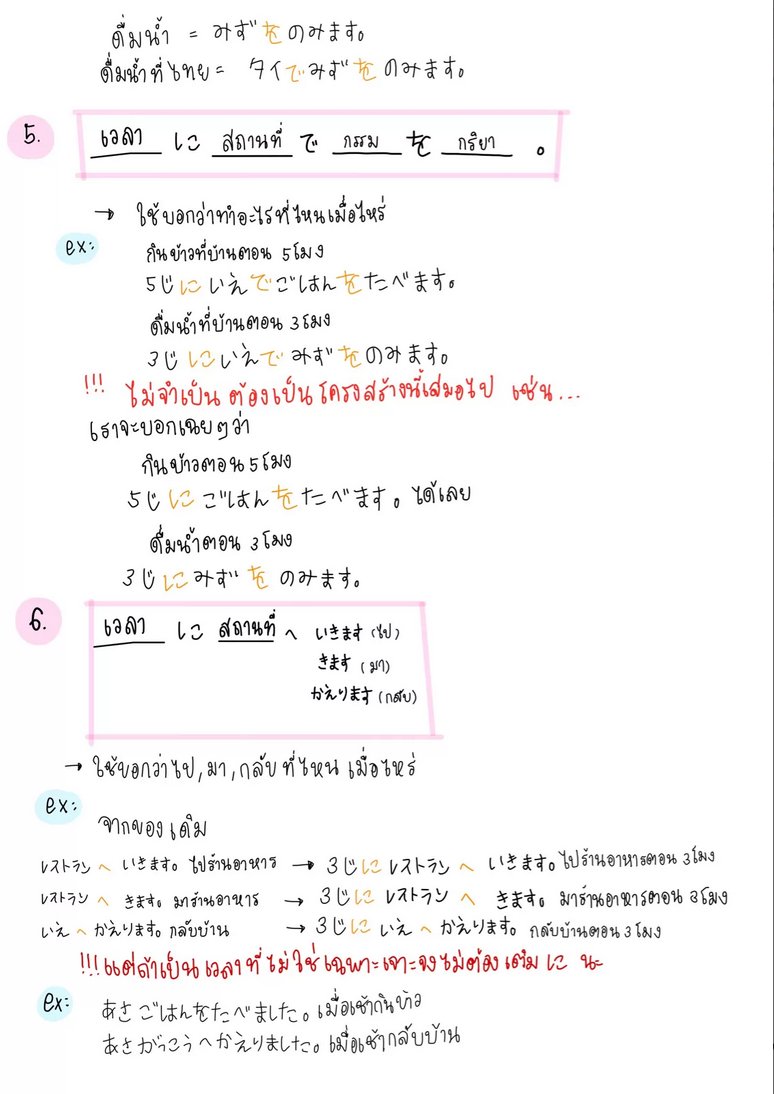 ดื่มน้ำ = みずをのみます。
ดื่มน้ำที่ไทย = タイでみずをのみます。
5. เวลา に สถานที่ で กรรม を กริยา 。
→ ใช้บอกว่าทำอะไรที่ไหนเมื่อไหร่
ex: กินข้าวที่บ้านตอน 5โมง
5じにいえでごはんをたべます。
ดื่มน้ำที่บ้านตอน 3โมง
3じにいえでみずをのみます。
!!! ไม่จำเป็นต้องเป็นโครงสร้างนี้เสมอไป เช่น...
เราจะบอกเฉยๆว่า
กินข้าวตอน 5โมง
5じにごはんをたべます。ได้เลย
ดื่มน้ำตอน 3โมง
3じにみずをのみます。
6. เวลา に สถานที่ へ いきます (ไป)
きます (มา)
かえります (กลับ)
→ ใช้บอกว่าไป, มา, กลับ ที่ไหน เมื่อไหร่
ex: จากของเดิม
レストランへいきます。ไปร้านอาหาร → 3じにレストランへいきます。ไปร้านอาหารตอน 3โมง
レストランへきます。มาร้านอาหาร → 3じにレストランへきます。มาร้านอาหารตอน 3โมง
いえへかえります。กลับบ้าน → 3じにいえへかえります。กลับบ้านตอน 3โมง
!!! แต่ถ้าเป็นเวลาที่ไม่ใช่เฉพาะเจาะจงไม่ต้องเติม に นะ
ex: あさごはんをたべました。เมื่อเช้ากินข้าว
あさがっこうへかえりました。เมื่อเช้ากลับบ้าน